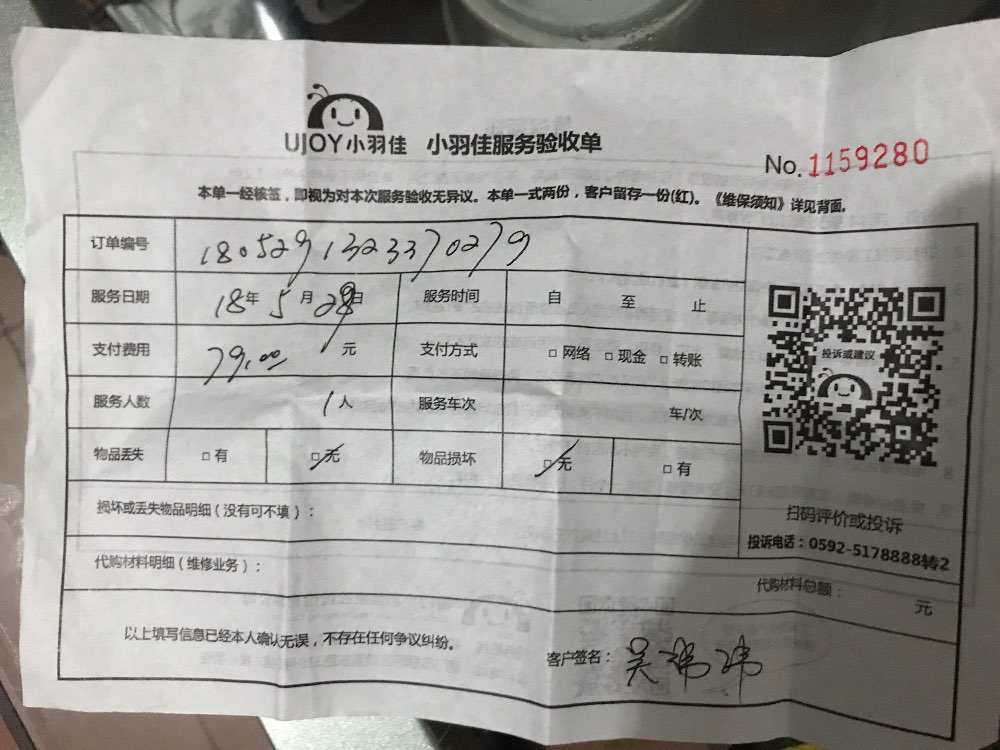 UJOY小羽佳 小羽佳服务验收单
No. 1159280
本单一经核签，即视为对本次服务验收无异议。本单一式两份，客户留存一份(红)。《维保须知》详见背面。
订单编号 1805291323370279
服务日期 18年 5月 29日 服务时间 自 至 止
支付费用 79.00 元 支付方式 □ 网络 □ 现金 □ 转账
服务人数 1人 服务车次 车/次
物品丢失 □ 有 □ 无 物品损坏 □ 无 □ 有
投诉或建议
扫码评价或投诉
投诉电话：0592-5178888转2
损坏或丢失物品明细（没有可不填）：
代购材料明细（维修业务）： 代购材料总额： 元
以上填写信息已经本人确认无误，不存在任何争议纠纷。
客户签名：吴祎玮